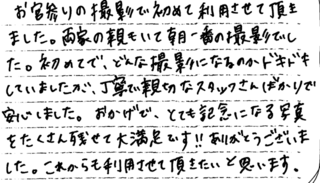 お宮参りの撮影で初めて利用させて頂き
ました。両家の親もいて朝一番の撮影でし
た。初めてで、どんな撮影になるのかドキドキ
していましたが、丁寧で親切なスタッフさんばかりで
安心しました。おかげで、とても記念になる写真
をたくさん残せて大満足です!!ありがとうございま
した。これからも利用させて頂きたいと思います。